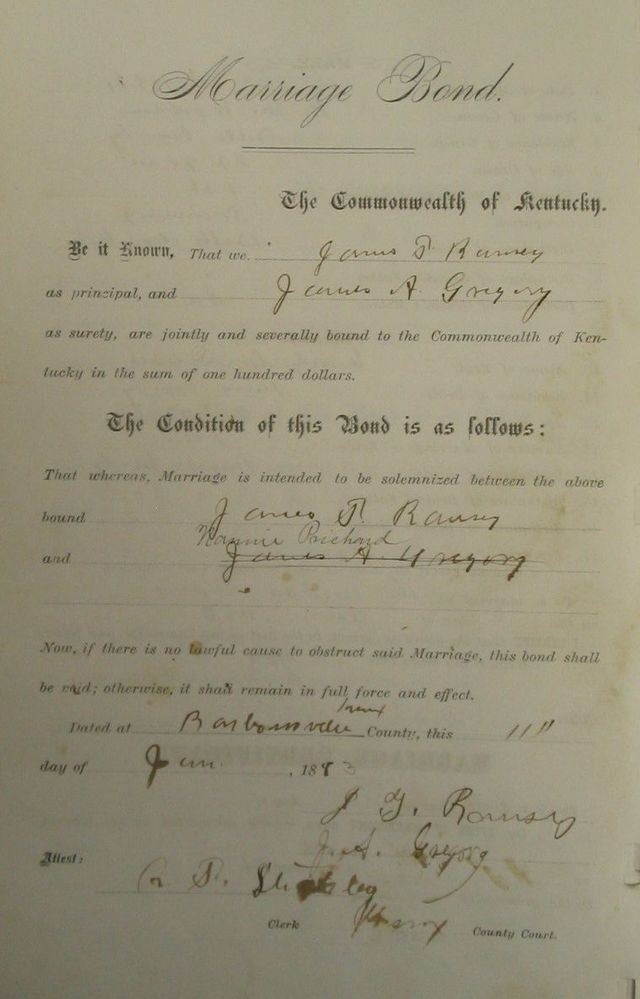 Marriage Bond.
The Commonwealth of Kentucky.
Be it Known, That we. James T. Ramsey
as principal, and James A. Gregory
as surety, are jointly and severally bound to the Commonwealth of Ken-
tucky in the sum of one hundred dollars.
The Condition of this Bond is as follows:
That whereas, Marriage is intended to be solemnized between the above
bound James T. Ramsey
Nannie Prichard
and James A. Gregory
Now, if there is no lawful cause to obstruct said Marriage, this bond shall
be void; otherwise, it shall remain in full force and effect.
Knox
Dated at Barbourville County, this 11"
day of Jan. , 1883
J T. Ramsey
J. A. Gregory
Attest:
Clerk Knox County Court.